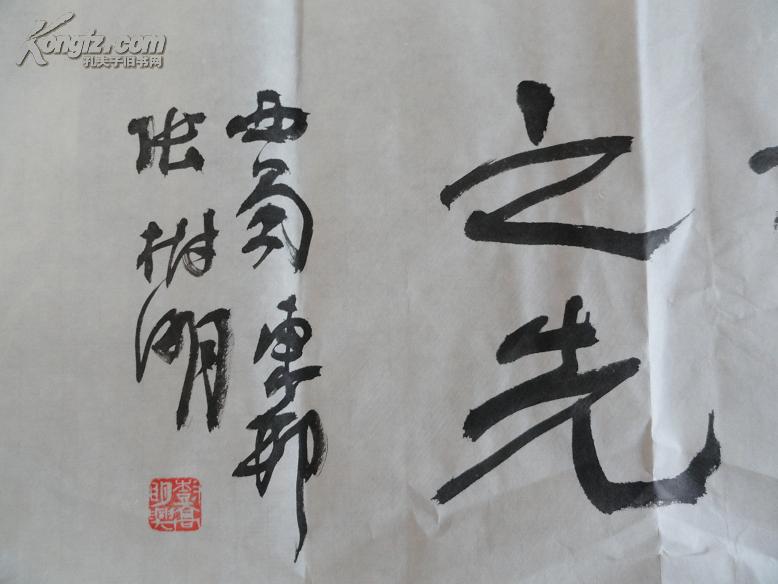 Kongfz.com
孔夫子旧书网
之先
西蜀東邨
张
明